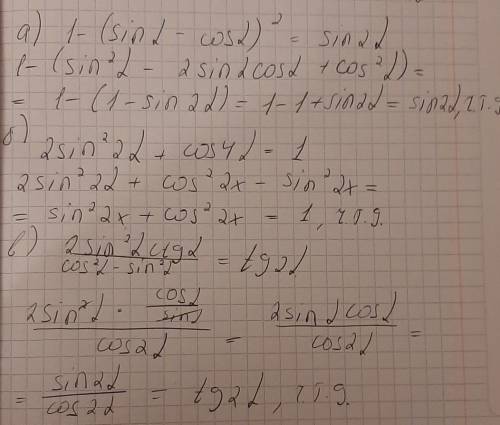 а) 1-(sinα - cosα)² = sin2α
1-(sin²α - 2sinαcosα + cos²α)=
= 1-(1-sin2α)= 1-1+sin2α = sin2α, ч.т.д
б)
2sin²2α + cos4α = 1
2sin²2α + cos²2x - sin²2x =
= sin²2x + cos²2x = 1, ч.т.д.
в) (2sin²α ctgα)/(cos²α - sin²α) = tg2α
(2sin²α · cosα/sinα)/(cos2α) = (2sinαcosα)/(cos2α) =
= sin2α/cos2α = tg2α, ч.т.д.